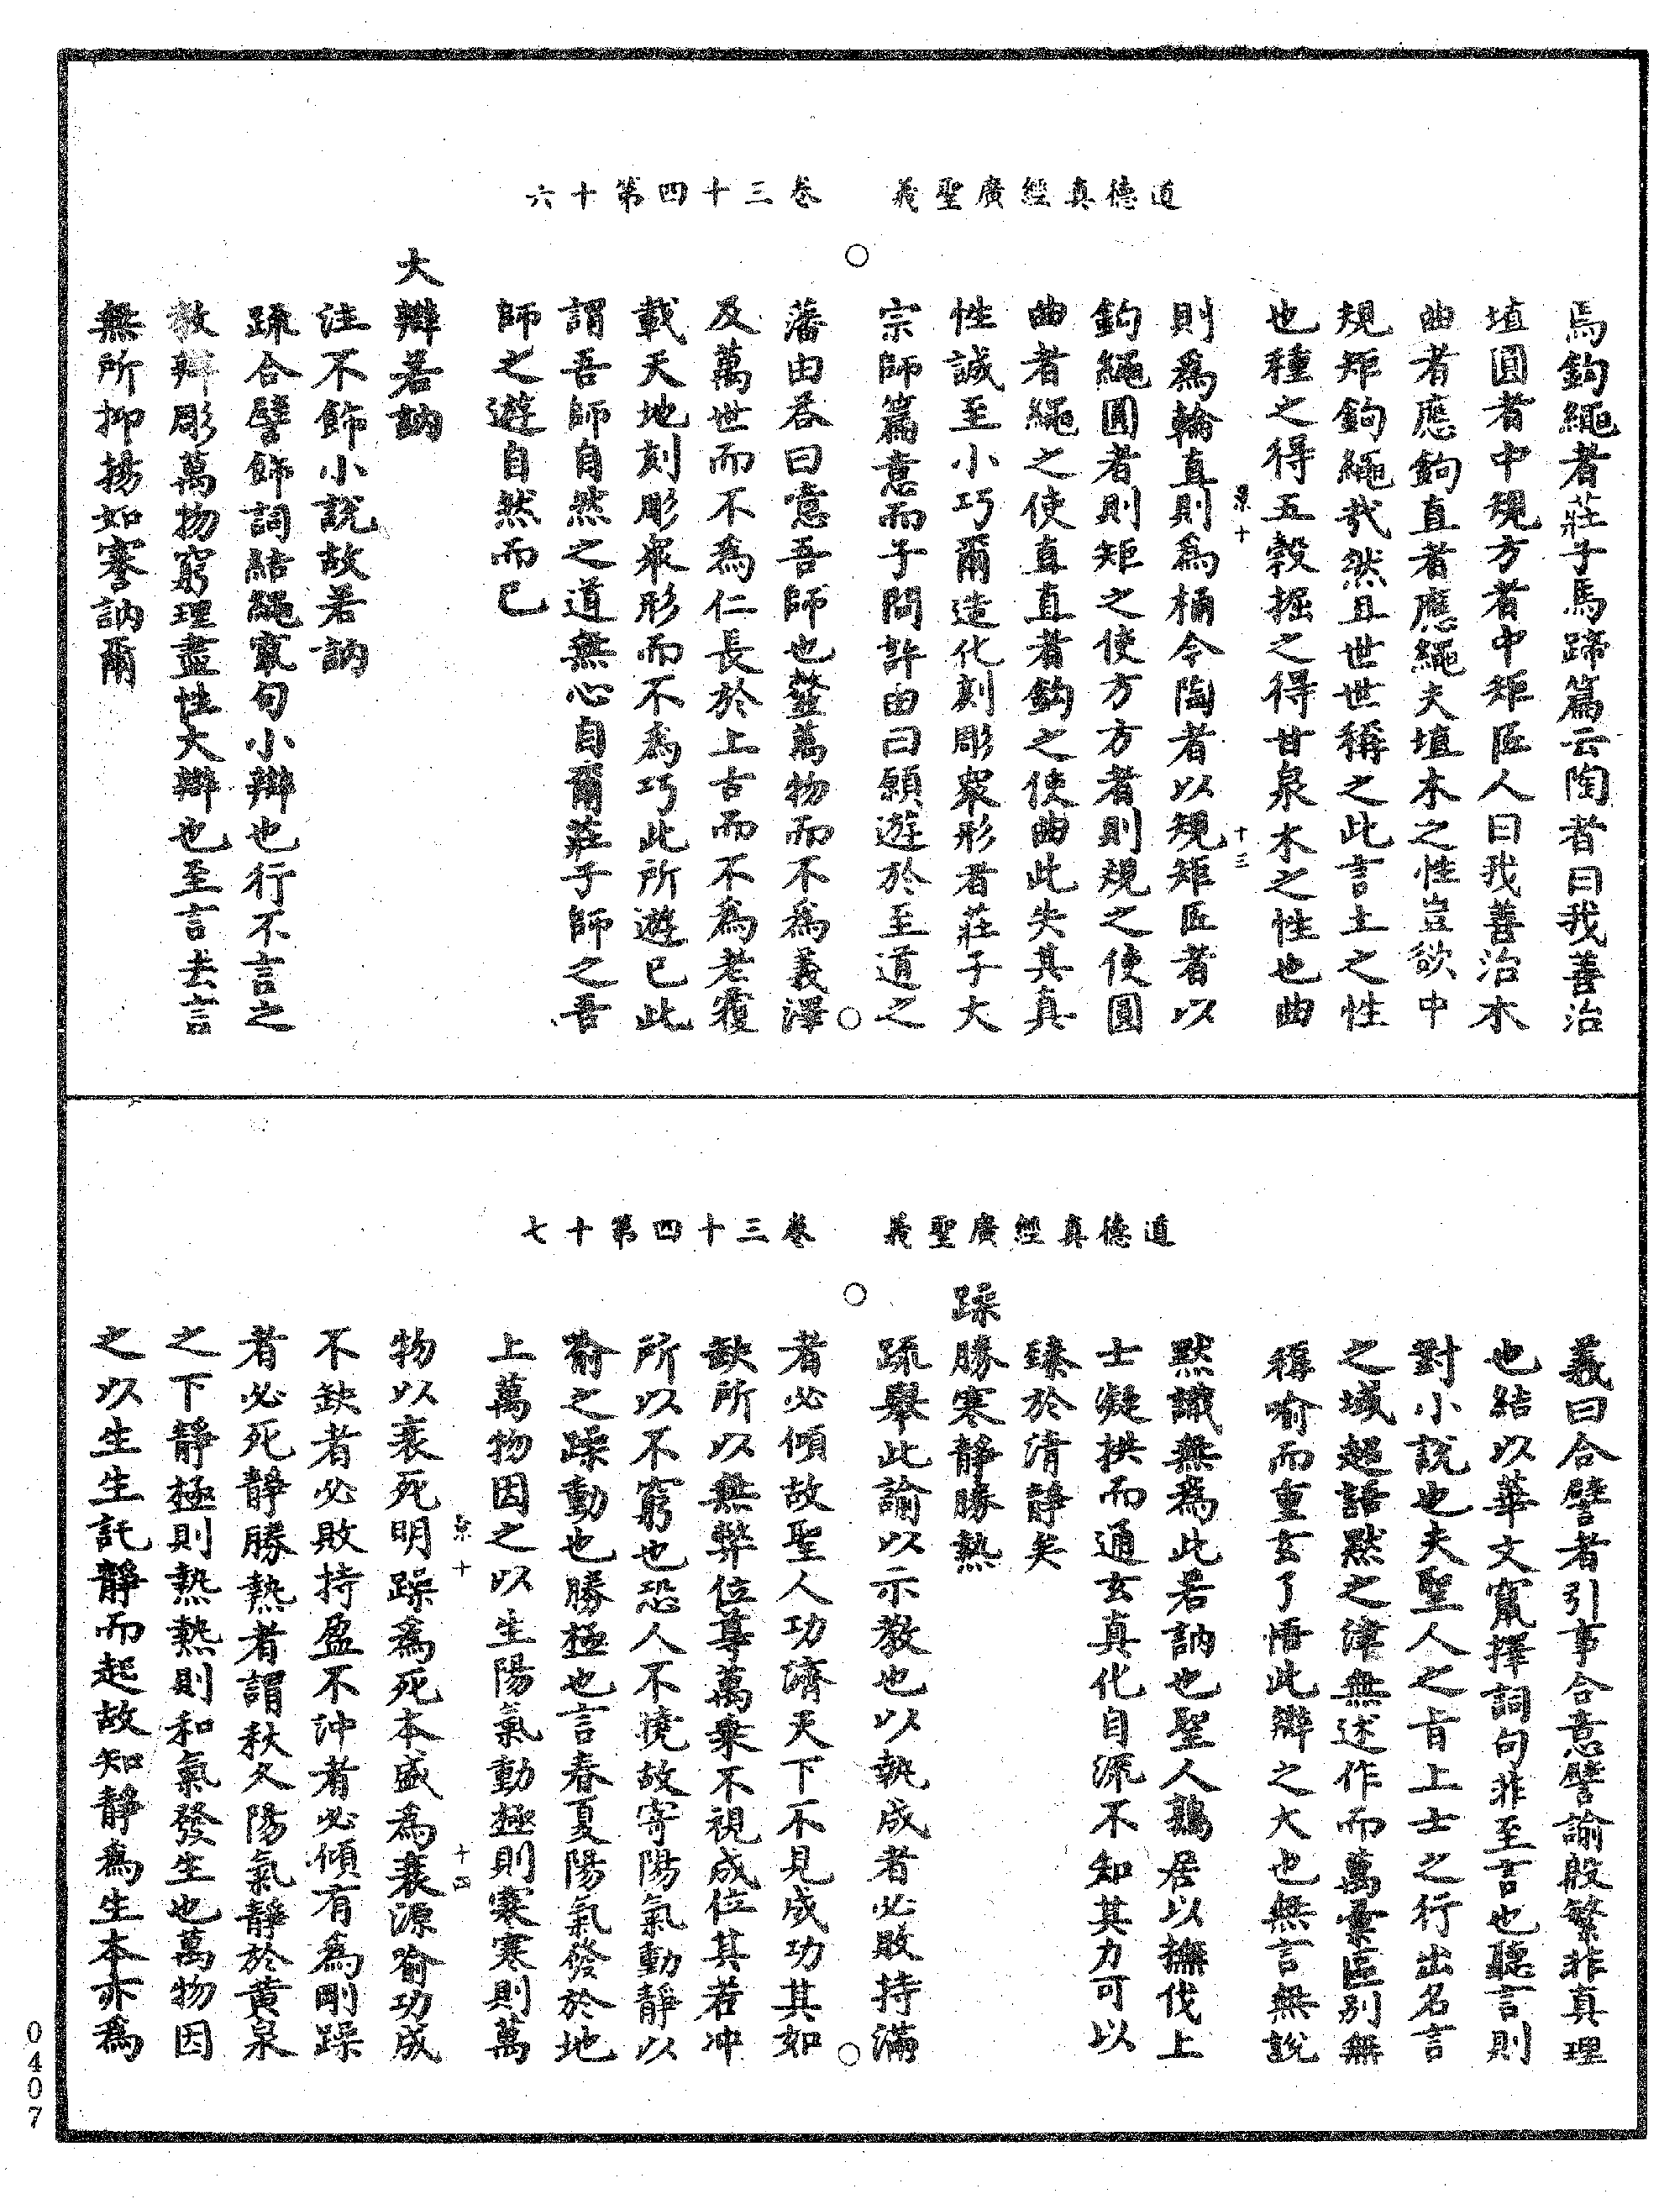 道德真經廣聖義　卷三十四第十六
焉鉤繩者莊子馬蹄篇云陶者曰我善治
埴圓者中規方者中矩匠人曰我善治木
曲者應鉤直者應繩夫埴木之性豈欲中
規矩鉤繩哉然且世世稱之此言土之性
也種之得五穀掘之得甘泉木之性也曲
則為輪直則為桶令陶者以規矩匠者以
鉤繩圓者則矩之使方方者則規之使圓
曲者繩之使直直者鉤之使曲此失其真
性誠至小巧爾造化刻彫眾形者莊子大
宗師篇意而子問許由曰願遊於至道之
藩由荅曰噫吾師也𩐋萬物而不為義澤
及萬世而不為仁長於上古而不為老覆
載天地刻彫眾形而不為巧此所遊已此
謂吾師自然之道無心自爾莊子師之吾
師之遊自然而已
大辯若訥
注不飾小說故若訥
疏合譬飾詞結繩竄句小辯也行不言之
教辯彫萬物窮理盡性大辯也至言去言
無所抑揚如謇訥爾
道德真經廣聖義　卷三十四第十七
義曰合譬者引事合意譬諭般繁非真理
也結以華文竄擇詞句非至言也聽言則
對小說也夫聖人之旨上士之行出名言
之域超語默之津無述作而萬彙區別無
稱喻而重玄了悟此辯之大也無言無說
默識無為此若訥也聖人鶉居以撫伐上
士凝拱而通玄真化自流不知其力可以
臻於清靜矣
躁勝寒靜勝熱
疏舉此諭以示教也以執成者必敗持滿
者必傾故聖人功濟天下不見成功其如
缺所以無弊位尊萬乘不視成位其若沖
所以不窮也恐人不曉故寄陽氣動靜以
喻之躁動也勝極也言春夏陽氣發於地
上萬物因之以生陽氣動極則寒寒則萬
物以衰死明躁為死本盛為衰源喻功成
不缺者必敗持盈不沖者必傾有為剛躁
者必死靜勝熱者謂秋冬陽氣靜於黃泉
之下靜極則熱熱則和氣發生也萬物因
之以生生託靜而起故知靜為生本亦為
0407